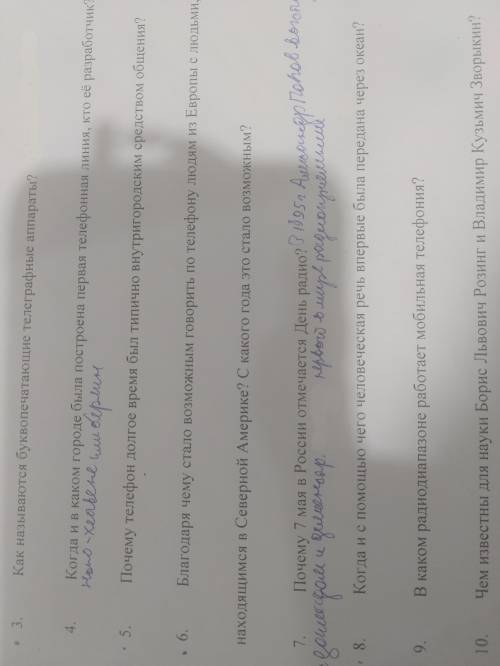 3. Как называются буквопечатающие телеграфные аппараты?
4. Когда и в каком городе была построена первая телефонная линия, кто её разработчик?
или берлин
5. Почему телефон долгое время был типично внутригородским средством общения?
6. Благодаря чему стало возможным говорить по телефону людям из Европы с людьми,
находящимся в Северной Америке? С какого года это стало возможным?
7. Почему 7 мая в России отмечается День радио? В 1895г Александр Попов
первый в мире
8. Когда и с помощью чего человеческая речь впервые была передана через океан?
9. В каком радиодиапазоне работает мобильная телефония?
10. Чем известны для науки Борис Львович Розинг и Владимир Кузьмич Зворыкин?